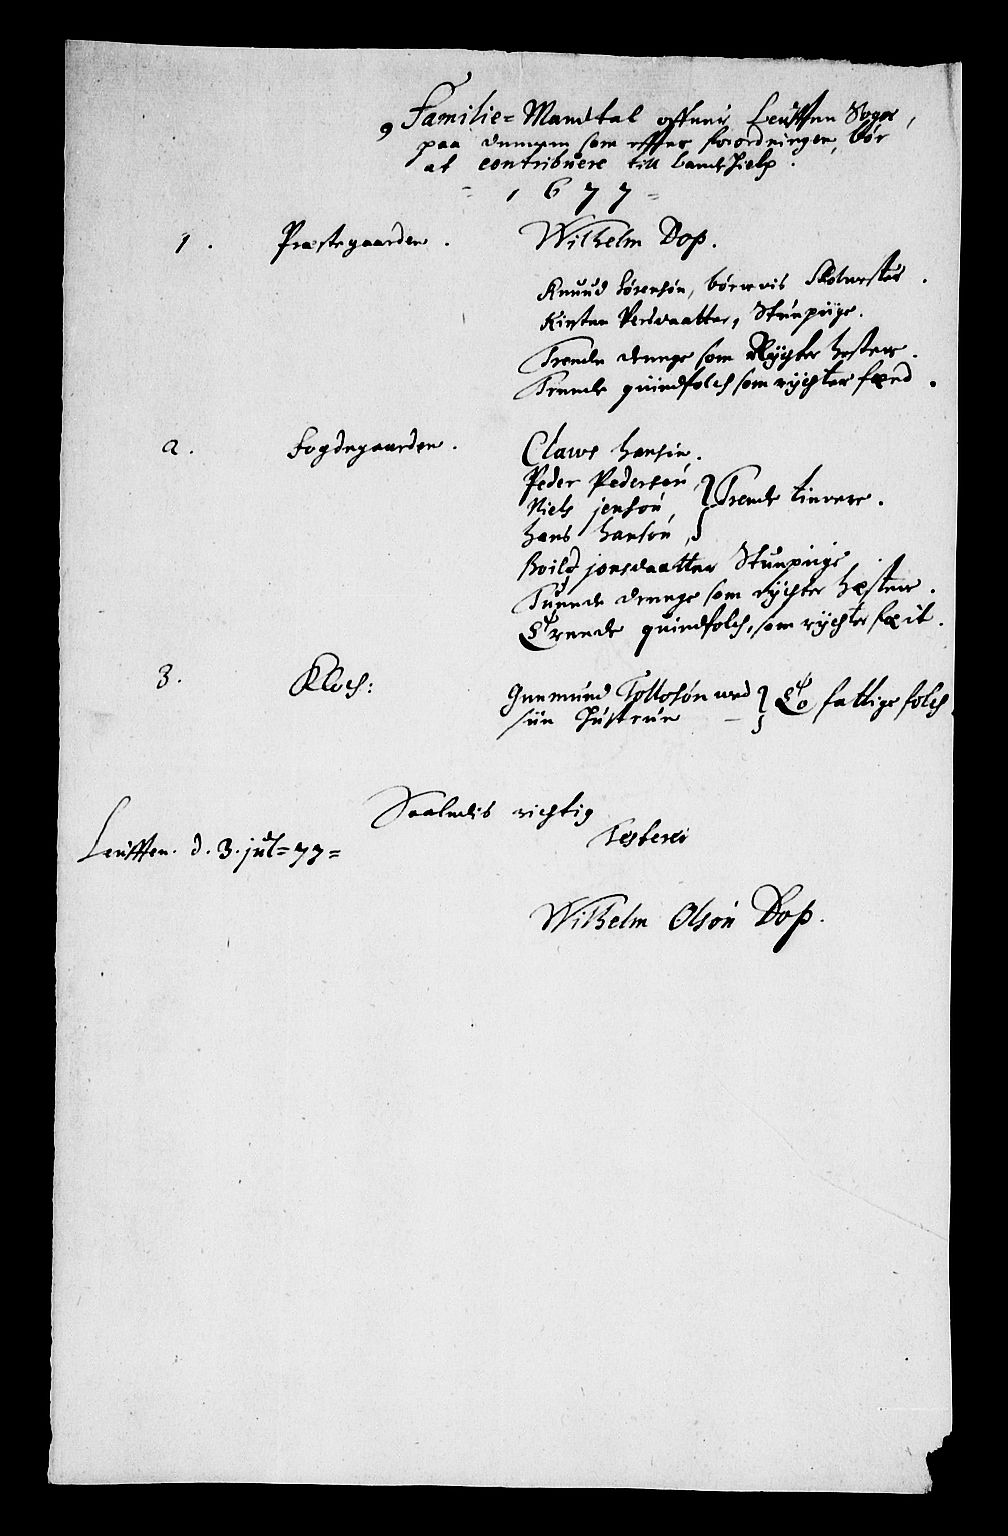 Familie= Mandtal offuer Leufften Sogn,
paa dennem som effter forordningen, bør
at contribuere till Landhielp.
= 1677 =
1. Præstegaarden. Wilhelm Dop.
Knuud Sørensøn, børnenis Skolmester.
Kirsten Persdaatter, Stuupiige.
Trende drenge som Røgter hestene.
Trende quindfolch som røgter fæed.
2. Fogdegaarden. Claus Hansøn.
Peder Pedersøn
Niels jensøn, } Trende tienere.
Hans Hansøn,
Boild jonsdaatter Stuupiige
Tuende drenge som røgter hestene.
Trende quindfolch, som røgter fæit.
3. Kloch: Gunmund Tollosøn med } To fattige folch.
siin Hustrue
Saaledis richtig
Testerer
Leufften. d. 3. jul= 77=
Wilhelm Olsøn Dop.